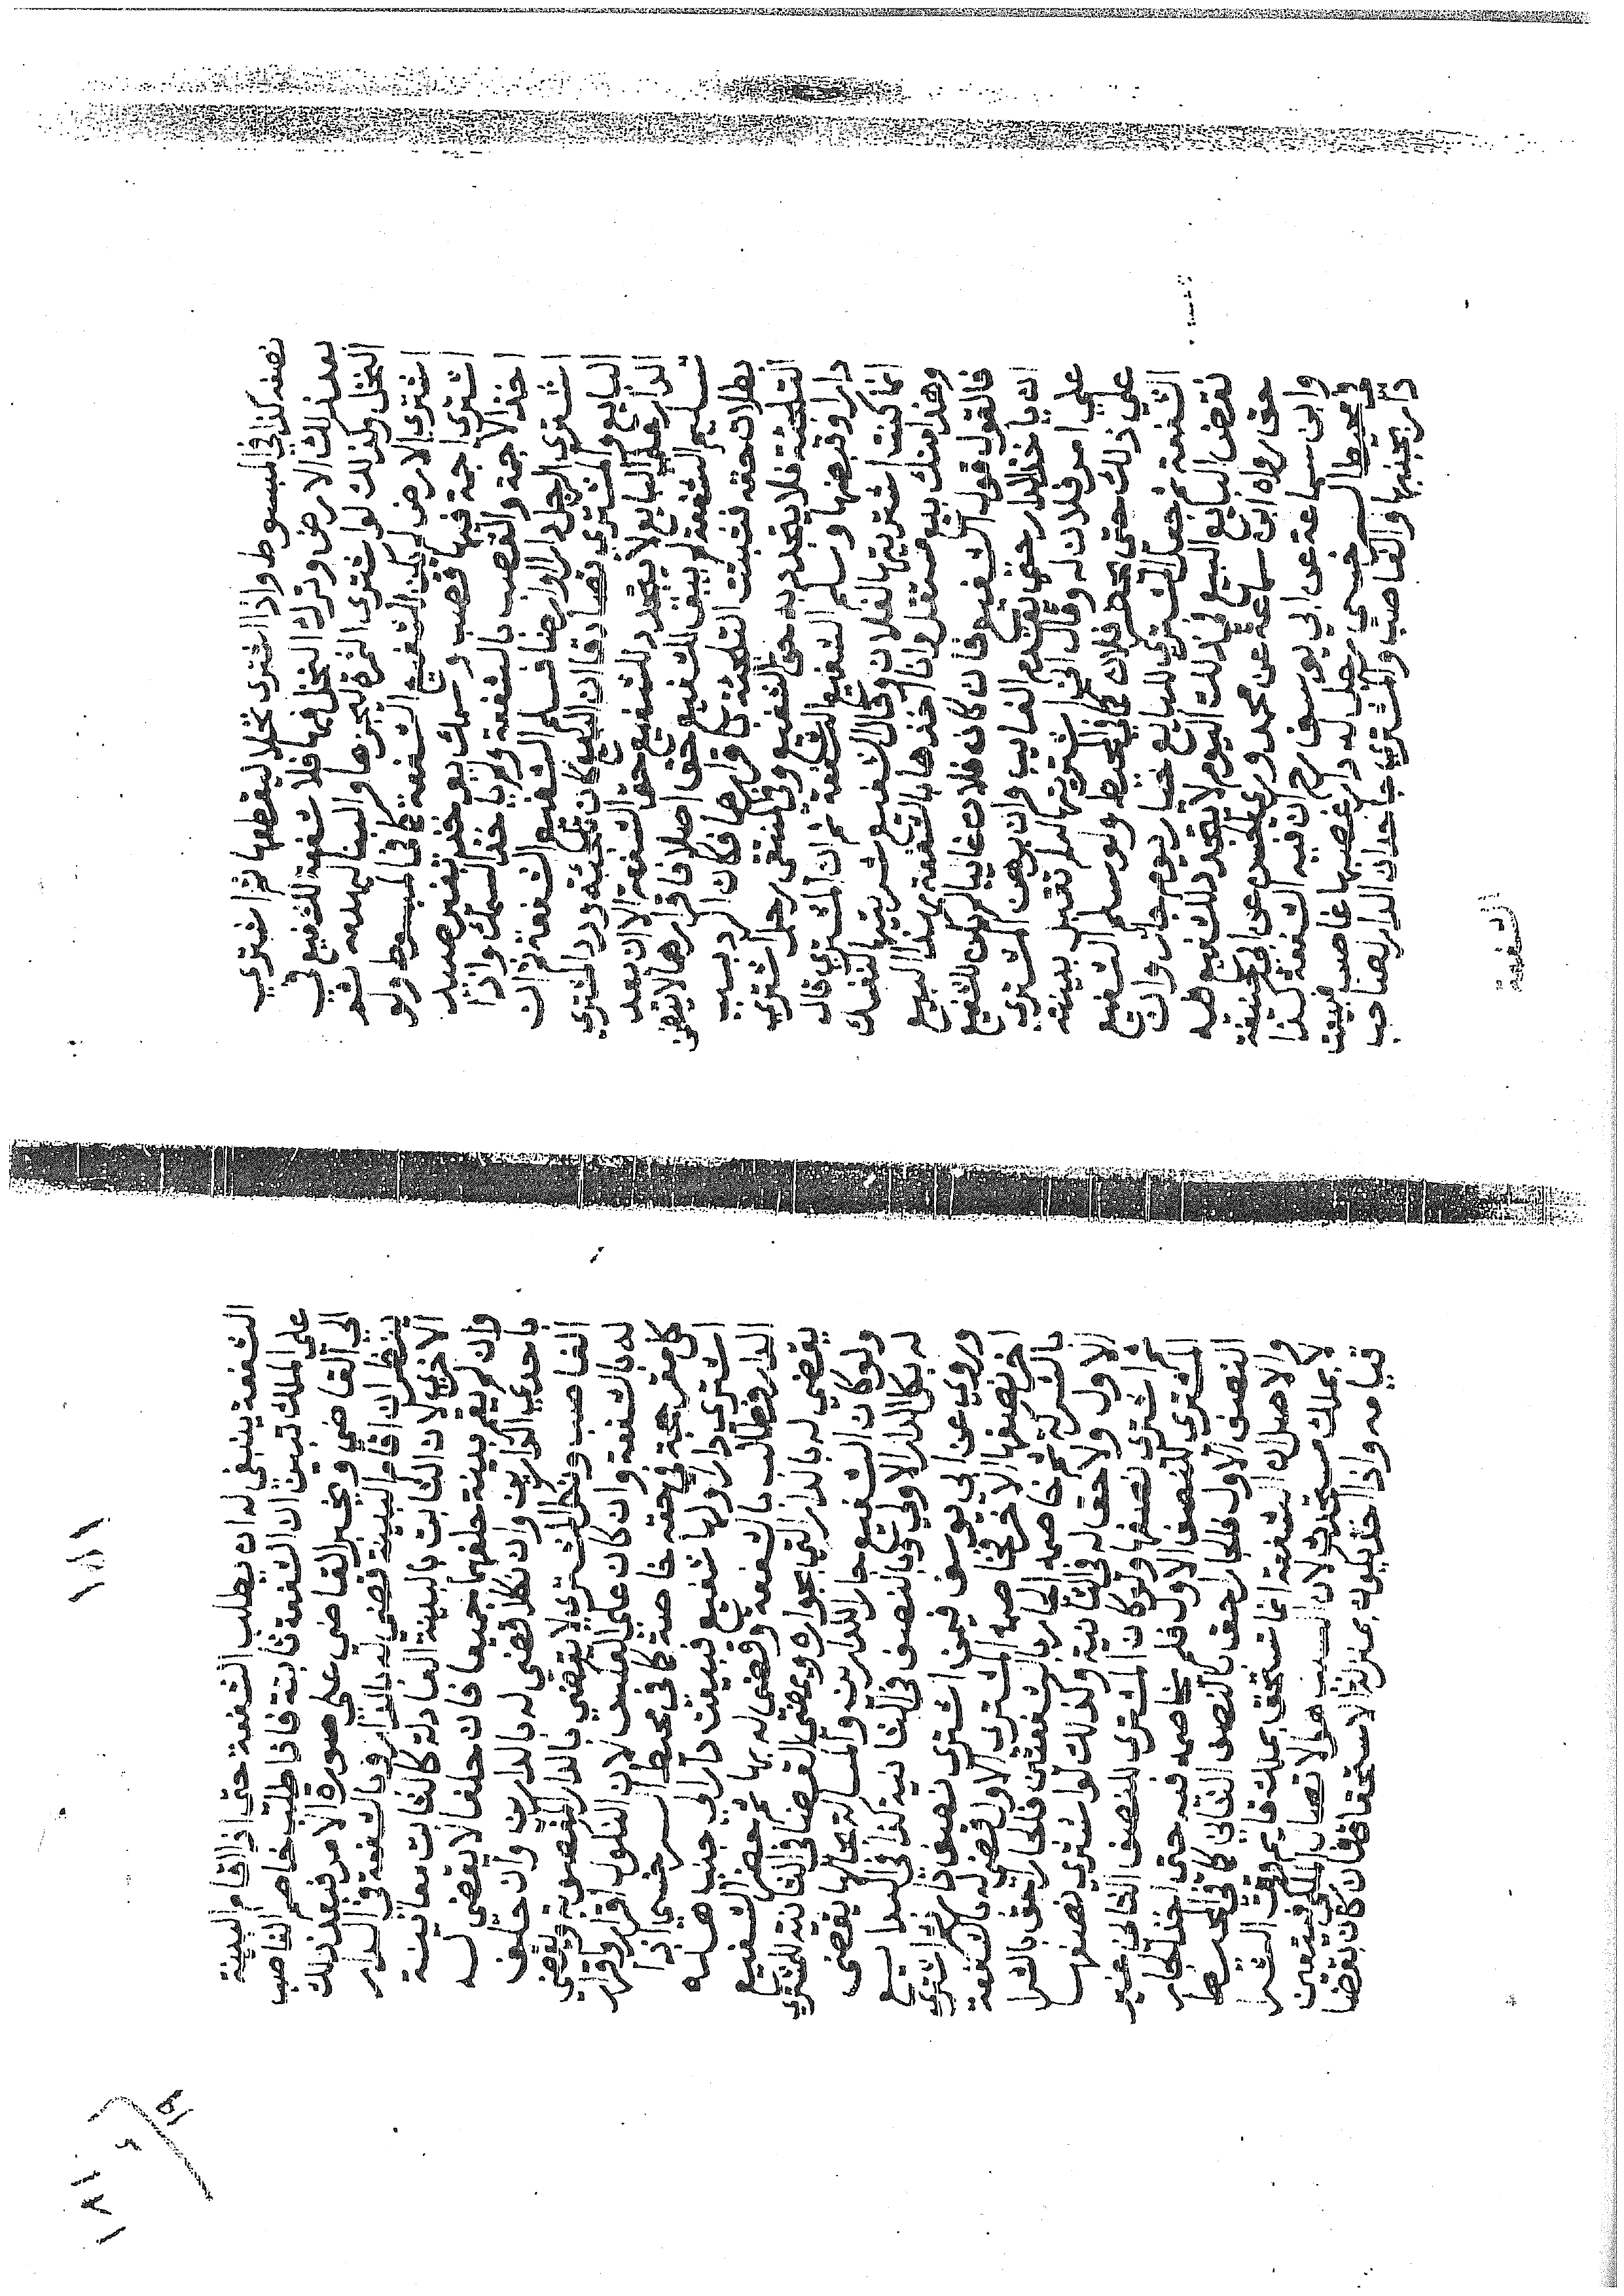 نصفه كذا في المبسوط واذا اشترى نخلا ليقطعها ثم اشتري
بعد ذلك الارض وترك النخل فيها فلا شفعة للشفيع في
النخل وكذلك لو اشترى الثمرة ليجزها والبنا ليهدمه ثم
اشتري الارض لم يكن للشفيع الشفعة كما في المبسوط ولو
اشتري اجمة فيها قصب وسمك يوخذ بغير صيد
اخذ الاجمة والقصب بالشفعة ولم ياخذ السمك واذا
اشتري الرجل دارا او ارضا فسلم الشفيع الشفعة ثم ان
البايع والمشتري تصادقا ان البيع كان تلجئة ورد المشتري
الدار على البايع لا يتجدد للشفيع حق الشفعة الا ان بعد
تسليم الشفعة لم يبق للشفيع حق اصلا فاقرارهما لا يتضمن
بطلان حقه فتثبت التلجئة باقرارهما فكان الرد بسبب
التلجئة فلا يتجدد به حق الشفيع وفي المنتقى رجل اشتري
دارا وقبضها وسلم الشفيع الشفعة ثم ان المشتري قال
انما كنت اشتريتها لفلان وقال الشفيع شريتها لنفسك
وهذا منك بيع مستقل وانا اخذها بالشفعة بهذا البيع
فالقول قول الشفيع فان كان فلان غايبا لم يكن للشفيع
ان ياخذ الدار حتى يقدم الغايب وان برهن المشتري
علي امر فلان له وقال اني اشتريتها له لم تقبل بينته
علي ذلك حتى يحضر فلان كما في المحيط ولو سلم الشفيع
الشفعة ثم جعل المشتري للبايع خيار يوم جاز وان
نقض البايع البيع في ذلك اليوم لا يتجدد للشفيع فيه
حق رواه ابن سماعة عن محمد وروي الحسن عن ابي حنيفة
وابن سماعة عن ابي يوسف رح ان فيه الشفعة كذا
في محيط السرخسي رجل له دار غصبها غاصب فبيعت
دار بجنبها والغاصب والمشتري جاحدان الدار لصاحب
الشفعة
١٨١
الشفعة ينبغي له ان يطلب الشفعة حتى اذا اقام البينة
علي الملك تبين ان الشفعة ثابتة فاذا طلب خاصم الغاصب
الي القاضي ويخبر القاضي علي صورة الامر فبعد ذلك
ينظر ان اقام البينة قضي له بالدار وبالشفعة في الدار
الاخري لان الثابت بالبينة العادلة كالثابت معاينة
وان لم يقم بينة حلفهما جميعا فان حلفا لا يقضي له
باحدي الدارين وان نكلا قضي له بالدارين وان حلف
الغاصب ونكل المشتري لا يقضي بالدار المغصوبة ويقضي
له بالشفعة وان كان علي العكس لان النكول اقرار واقرار
كل مقر حجة في حقه خاصة كما في محيط السرخسي اذا
اشتري دارا ولها شفيع فبيعت دار الي جنب هذه
الدار فطلب بالشفعة وقضي له بها ثم حضر الشفيع
يقضي له بالدار التي بجواره ويمضي القضا في الثانية للمشتري
ولو كان الشفيع جارا للدارين والمسالة بحالها يقضي
له بكل الدار الاولي وبالنصف في الثانية كذا في البدايع
وروي عن ابي يوسف فيمن اشتري نصف دار ثم اشتري
اخر نصفها الاخر فخاصمه المشتري الاول قضي له بالشفعة
بالشركة ثم خاصمه الجار بالشفعتين فالجار احق بالشرا
الاول ولا حق له في الثانية وكذلك لو اشتري نصفها
ثم اشتري نصفها ولو كان المشتري للنصف الثاني غير
المشتري للنصف الاول فلم يخاصمه فيه حتى اخذ الجار
النصف الاول فالجار احق بالنصف الثاني كما في المحيط
والاصل ان الشفعة انما تستحق بملك قايم وقت الشرا
لا بملك مستحدث لان السبب هو الاتصال بالملك فيتعين
قيامه واذا اخذ يكون بمنزلة الاستحقاق فان كان بقضا
١٨١